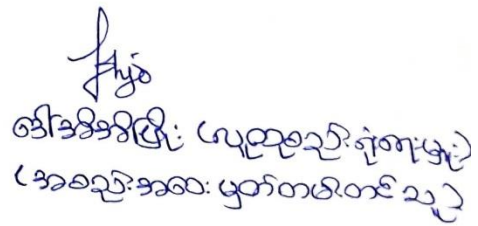 ဒေါ်အိအိဖြိုး (လူထုစည်းရုံးရေးမှူး)
(အစည်းအဝေး မှတ်တမ်းတင်သူ)